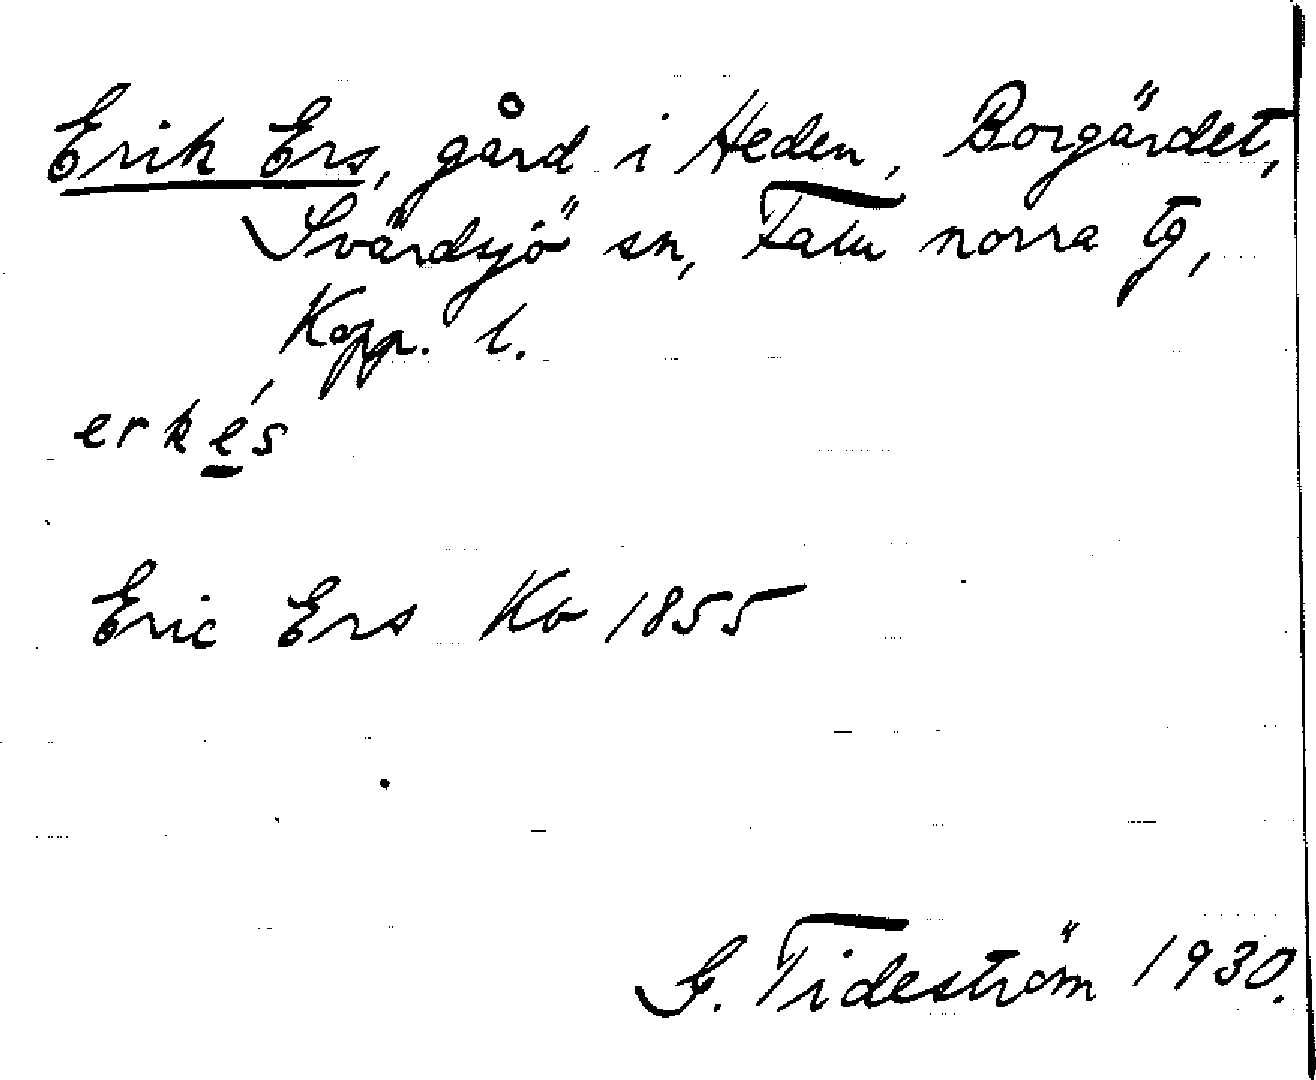 Erik Ers, gård i Heden, Borgärdet,
Svärdsjö sn, Falu norra tg,
Kopp. l.
erkés
Eric Ers Ko 1855
G. Tideström 1930.